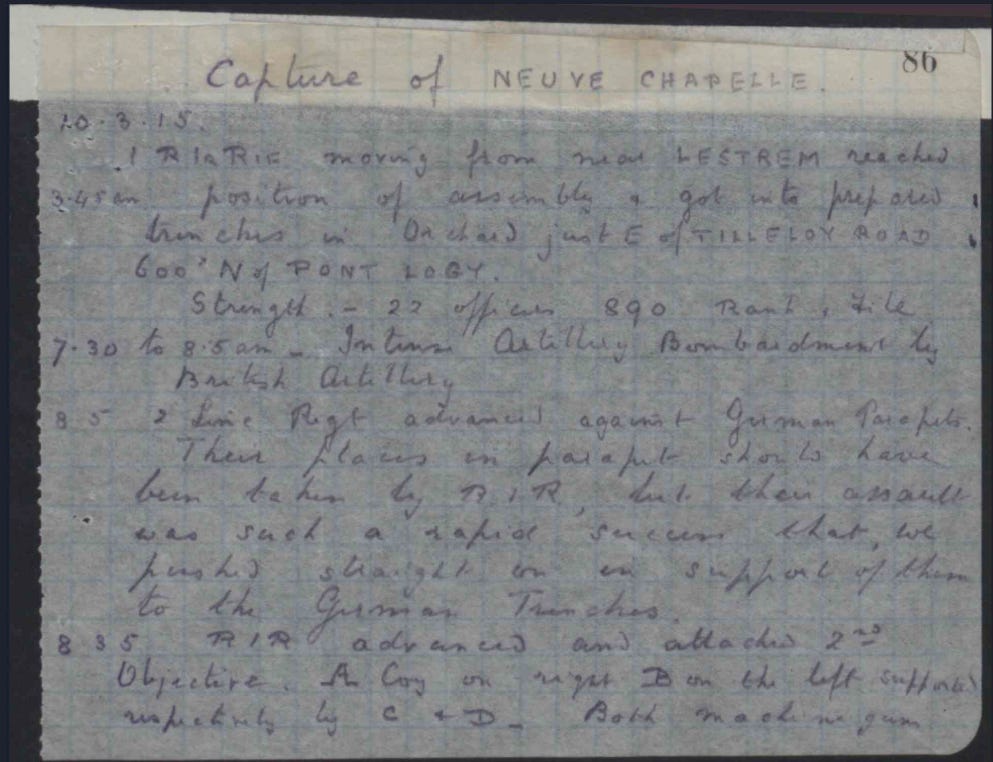 86
Capture of NEUVE CHAPELLE.
10.3.15.
1 R Ir Rif moving from near LESTREM reached
3.45 am position of assembly & got into prepared
trenches in Orchard just E of TILLELOY ROAD
600ˣ N of PONT LOGY.
Strength. - 22 officers 890 Rank & File
7.30 to 8.5 am - Intense Artillery Bombardment by
British Artillery
8 5 2 Linc Regt advanced against German Parapets.
Their places in parapet should have
been taken by R.I.R, but their assault
was such a rapid success that, we
pushed straight on in support of them
to the German Trenches.
8 35 RIR advanced and attacked 2nd
Objective. A Coy on right B on the left supported
respectively by C & D - Both machine guns